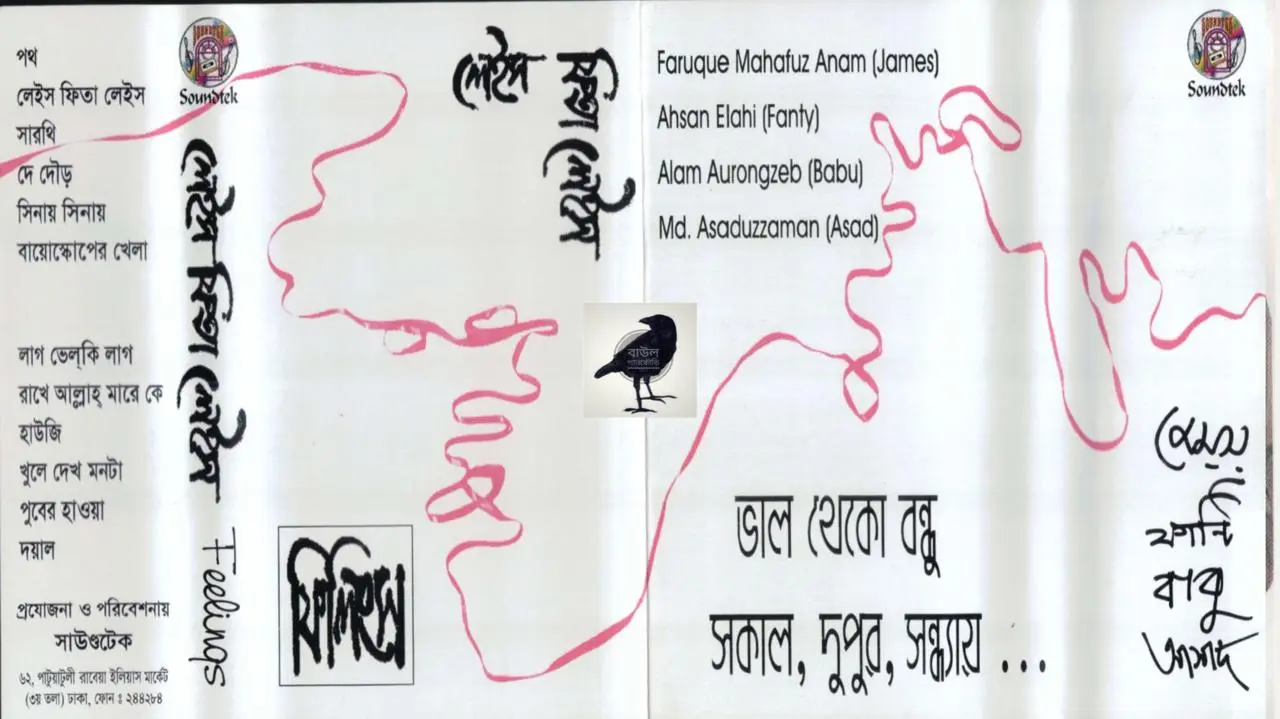 পথ
লেইস ফিতা লেইস
সারথি
দে দৌড়
সিনায় সিনায়
বায়োস্কোপের খেলা
লাগ ভেল্‌কি লাগ
রাখে আল্লাহ্ মারে কে
হাউজি
খুলে দেখ মনটা
পুবের হাওয়া
দয়াল
প্রযোজনা ও পরিবেশনায়
সাউণ্ডটেক
৬২, পাটুয়াটুলী রাবেয়া ইলিয়াস মার্কেট
(৩য় তলা) ঢাকা, ফোন ঃ ২৪৪২৮৪
SOUNDTEK
Soundtek
লেইস ফিতা লেইস
Feelings
লেইস
ফিতা লেইস
ফিলিংস
বাউল
Faruque Mahafuz Anam (James)
Ahsan Elahi (Fanty)
Alam Aurongzeb (Babu)
Md. Asaduzzaman (Asad)
ভাল থেকো বন্ধু
সকাল, দুপুর, সন্ধ্যায় ...
SOUNDTEK
Soundtek
জেমস
ফান্টি
বাবু
আসাদ